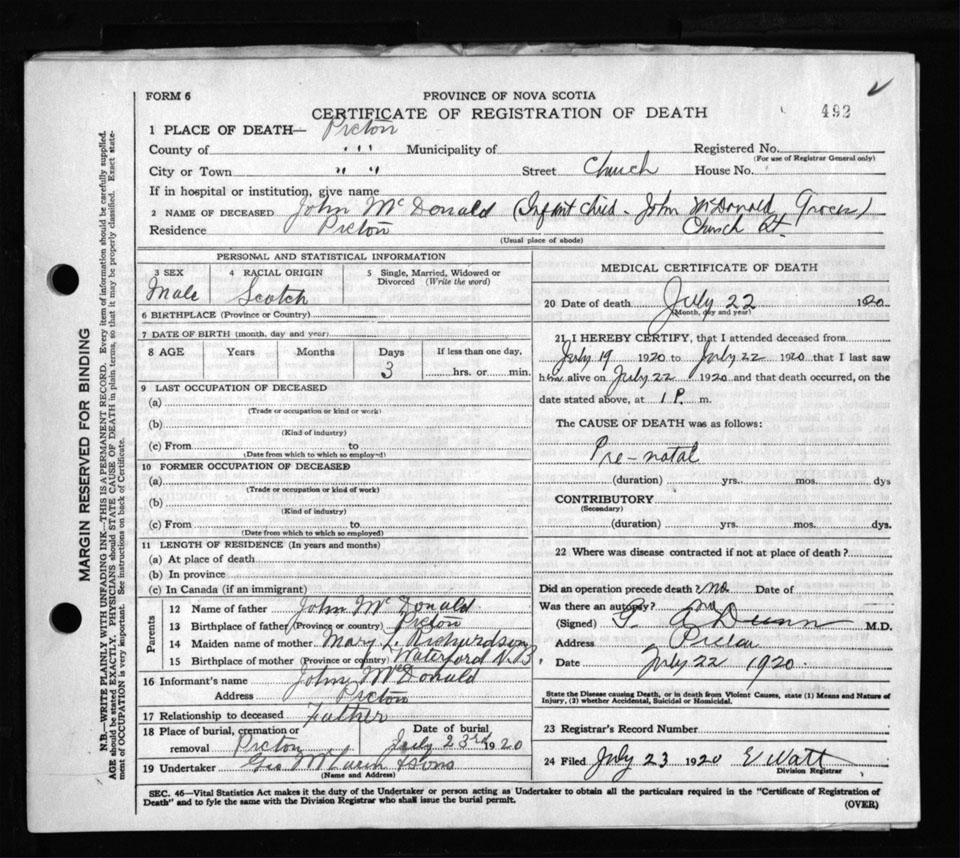 FORM 6
PROVINCE OF NOVA SCOTIA
CERTIFICATE OF REGISTRATION OF DEATH
493
1 PLACE OF DEATH— Pictou
County of " " Municipality of Registered No.
(For use of Registrar General only)
City or Town " " Street Church House No.
If in hospital or institution, give name
2 NAME OF DECEASED John McDonald (Infant child - John McDonald Grocer)
Residence Pictou Church St.
(Usual place of abode)
PERSONAL AND STATISTICAL INFORMATION
3 SEX 4 RACIAL ORIGIN 5 Single, Married, Widowed or Divorced (Write the word)
Male Scotch
6 BIRTHPLACE (Province or Country)
7 DATE OF BIRTH (month, day and year)
8 AGE Years Months Days If less than one day,
3 hrs. or min.
9 LAST OCCUPATION OF DECEASED
(a)
(Trade or occupation or kind or work)
(b)
(Kind of industry)
(c) From to
(Date from which to which so employed)
10 FORMER OCCUPATION OF DECEASED
(a)
(Trade or occupation or kind of work)
(b)
(Kind of industry)
(c) From to
(Date from which to which so employed)
11 LENGTH OF RESIDENCE (In years and months)
(a) At place of death
(b) In province
(c) In Canada (if an immigrant)
Parents
12 Name of father John McDonald
13 Birthplace of father (Province or country) Pictou
14 Maiden name of mother Mary L. Richardson
15 Birthplace of mother (Province or country) Waterford N.B
16 Informant's name John McDonald
Address Pictou
17 Relationship to deceased Father
18 Place of burial, cremation or removal Pictou Date of burial July 23rd 1920
19 Undertaker Geo & Sons
(Name and Address)
MEDICAL CERTIFICATE OF DEATH
20 Date of death July 22 1920
(Month, day and year)
21 I HEREBY CERTIFY, that I attended deceased from
July 19 1920 to July 22 1920 that I last saw
him alive on July 22 1920 and that death occurred, on the
date stated above, at 1 P. m.
The CAUSE OF DEATH was as follows:
Pre-natal
(duration) yrs. mos. dys
CONTRIBUTORY
(Secondary)
(duration) yrs. mos. dys.
22 Where was disease contracted if not at place of death?
Did an operation precede death? no Date of
Was there an autopsy? no
(Signed) Dunn M.D.
Address Pictou
Date July 22 1920
State the Disease causing Death, or in death from Violent Causes, state (1) Means and Nature of
Injury, (2) whether Accidental, Suicidal or Homicidal.
23 Registrar's Record Number
24 Filed July 23 1920 E Watt
Division Registrar
SEC. 46—Vital Statistics Act makes it the duty of the Undertaker or person acting as Undertaker to obtain all the particulars required in the "Certificate of Registration of
Death" and to fyle the same with the Division Registrar who shall issue the burial permit.
(OVER)
MARGIN RESERVED FOR BINDING
N.B.—WRITE PLAINLY WITH UNFADING INK—THIS IS A PERMANENT RECORD. Every item of information should be carefully supplied.
AGE should be stated EXACTLY. PHYSICIANS should STATE CAUSE OF DEATH in plain terms, so that it may be properly classified. Exact statement of OCCUPATION is very important. See instructions on back of Certificate.